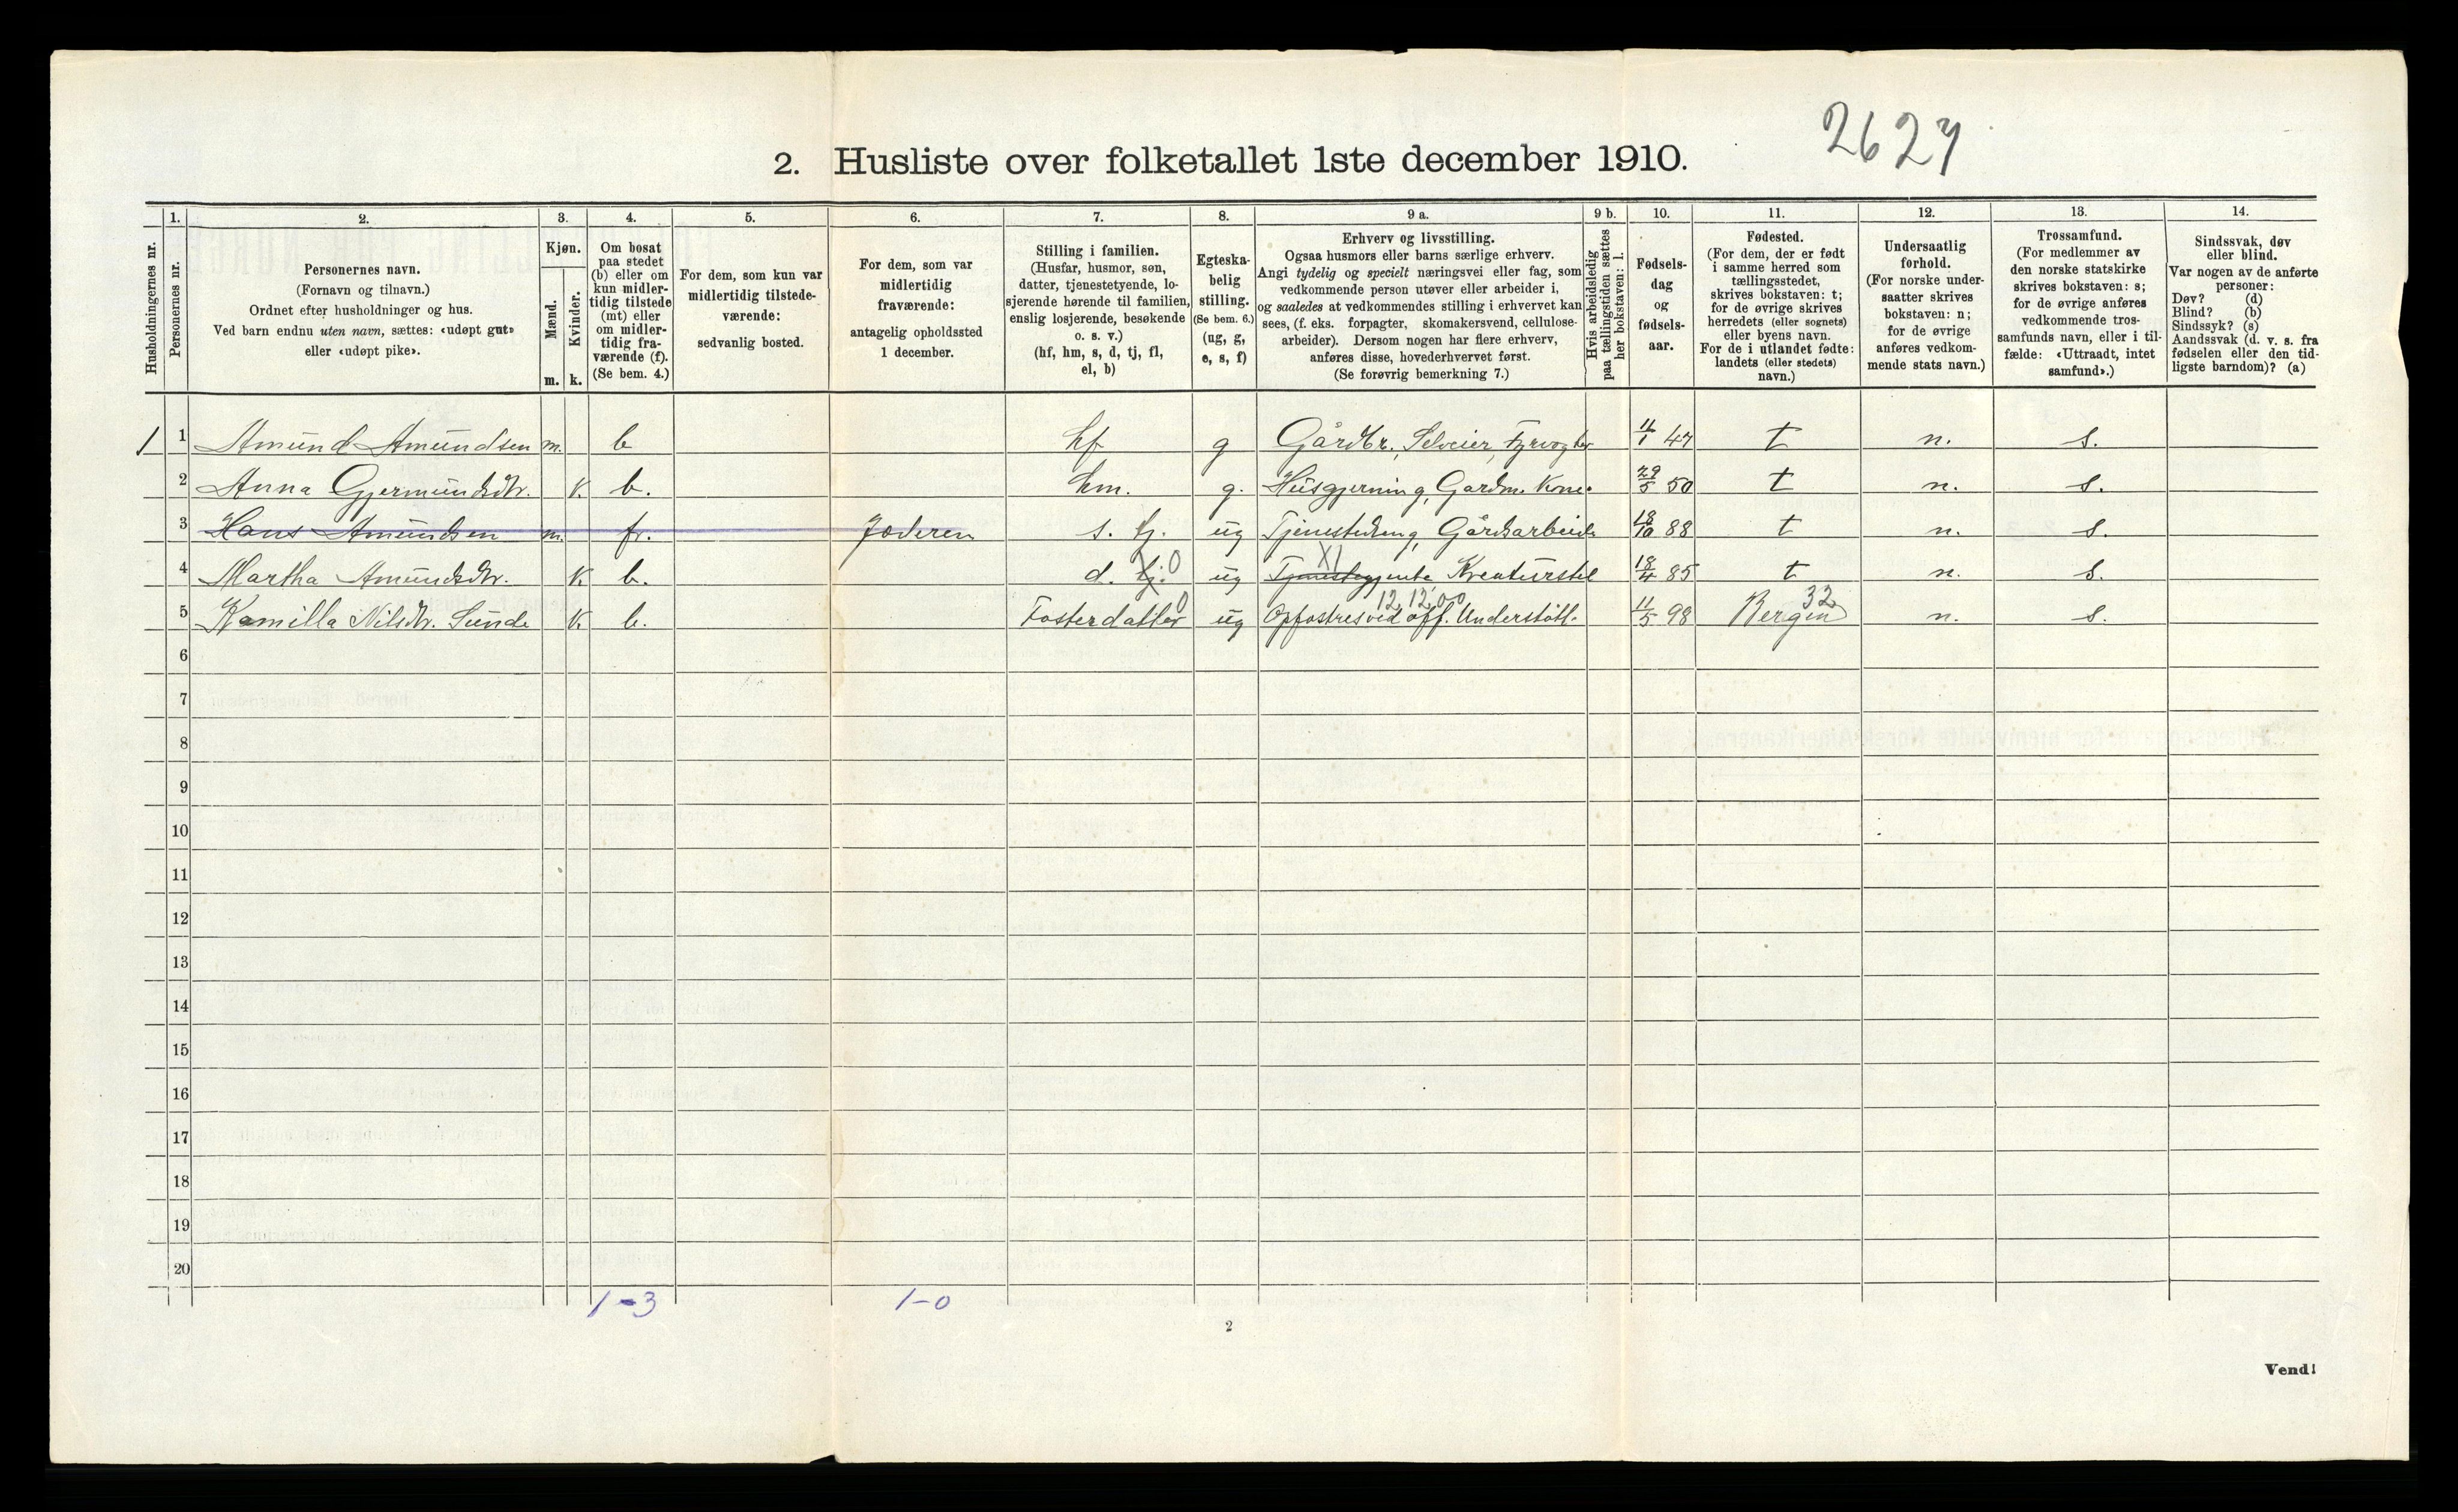 2627
2. Husliste over folketallet 1ste december 1910.
Husholdningernes nr.
1.
Personernes nr.
2.
Personernes navn.
(Fornavn og tilnavn.)
Ordnet efter husholdninger og hus.
Ved barn endnu uten navn, sættes: «udøpt gut»
eller «udøpt pike».
3.
Kjøn.
Mænd.
Kvinder.
m. k.
4.
Om bosat
paa stedet
(b) eller om
kun midler-
tidig tilstede
(mt) eller
om midler-
tidig fra-
værende (f).
(Se bem. 4.)
5.
For dem, som kun var
midlertidig tilstede-
værende:
sedvanlig bosted.
6.
For dem, som var
midlertidig
fraværende:
antagelig opholdssted
1 december.
7.
Stilling i familien.
(Husfar, husmor, søn,
datter, tjenestetyende, lo-
sjerende hørende til familien,
enslig losjerende, besøkende
o. s. v.)
(hf, hm, s, d, tj, fl,
el, b)
8.
Egteska-
belig
stilling.
(Se bem. 6.)
(ug, g,
e, s, f)
9 a.
Erhverv og livsstilling.
Ogsaa husmors eller barns særlige erhverv.
Angi tydelig og specielt næringsvei eller fag, som
vedkommende person utøver eller arbeider i,
og saaledes at vedkommendes stilling i erhvervet kan
sees, (f. eks. forpagter, skomakersvend, cellulose-
arbeider). Dersom nogen har flere erhverv,
anføres disse, hovederhvervet først.
(Se forøvrig bemerkning 7.)
9 b.
Hvis arbeidsledig
paa tællingstiden sættes
her bokstaven: l.
10.
Fødsels-
dag
og
fødsels-
aar.
11.
Fødested.
(For dem, der er født
i samme herred som
tællingsstedet,
skrives bokstaven: t;
for de øvrige skrives
herredets (eller sognets)
eller byens navn.
For de i utlandet fødte:
landets (eller stedets)
navn.)
12.
Undersaatlig
forhold.
(For norske under-
saatter skrives
bokstaven: n;
for de øvrige
anføres vedkom-
mende stats navn.)
13.
Trossamfund.
(For medlemmer av
den norske statskirke
skrives bokstaven: s;
for de øvrige anføres
vedkommende tros-
samfunds navn, eller i til-
fælde: «Uttraadt, intet
samfund».)
14.
Sindssvak, døv
eller blind.
Var nogen av de anførte
personer:
Døv? (d)
Blind? (b)
Sindssyk? (s)
Aandssvak (d. v. s. fra
fødselen eller den tid-
ligste barndom)? (a)
1 1 Amund Amundsen m. b hf g Gårdbr., Selveier, Fyrvogter 11/1 47 t n. s.
2 Anna Gjermundsdtr. K. b. hm. g. Husgjerning, Gardm. Kone. 29/5 50 t n. s.
3 Hans Amundsen m. fr. Jæderen s. tj. ug Tjenestedreng, Gårdsarbeide 18/10 88 t n. s.
4 Martha Amundsdtr. K. b. d. tj. 0 ug XI Tjenestegjente Kreaturstel 18/4 85 t n. s.
5 Kamilla Nilsdtr. Sunde K. b. Fosterdatter 0 ug 12,12,00 Opfostres ved off. Understøtt. 11/5 98 Bergen 32 n. s.
6
7
8
9
10
11
12
13
14
15
16
17
18
19
20
1-3 1-0
2
Vend!